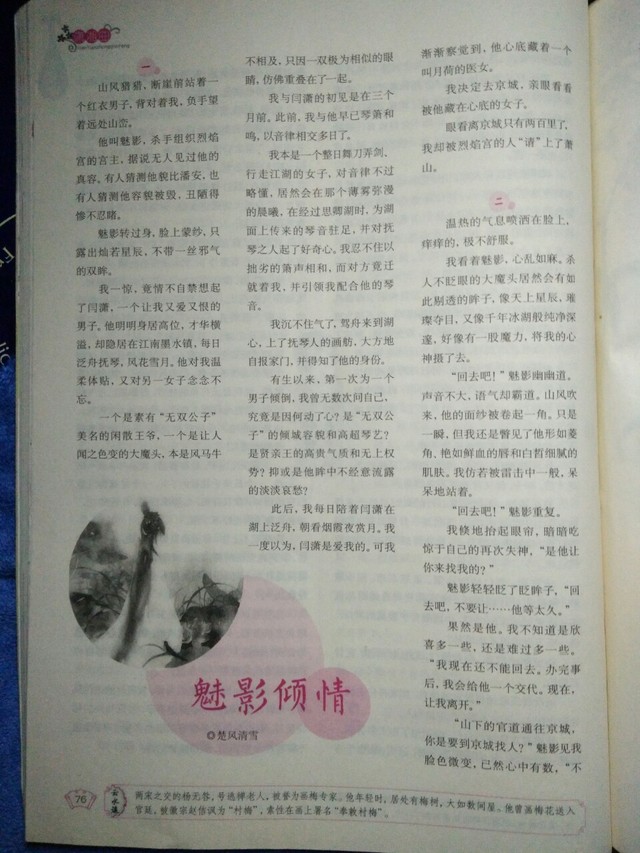 一
山风猎猎，断崖前站着一
个红衣男子，背对着我，负手望
着远处山峦。
他叫魅影，杀手组织烈焰
宫的宫主，据说无人见过他的
真容。有人猜测他貌比潘安，也
有人猜测他容貌被毁，丑陋得
惨不忍睹。
魅影转过身，脸上蒙纱，只
露出灿若星辰，不带一丝邪气
的双眸。
我一惊，竟情不自禁想起
了闫潇，一个让我又爱又恨的
男子。他明明身居高位，才华横
溢，却隐居在江南墨水镇，每日
泛舟抚琴，风花雪月。他对我温
柔体贴，又对另一女子念念不
忘。
一个是素有“无双公子”
美名的闲散王爷，一个是让人
闻之色变的大魔头，本是风马牛
不相及，只因一双极为相似的眼
睛，仿佛重叠在了一起。
我与闫潇的初见是在三个
月前。此前，我与他早已琴箫和
鸣，以音律相交多日了。
我本是一个整日舞刀弄剑、
行走江湖的女子，对音律不过
略懂，居然会在那个薄雾弥漫
的晨曦，在经过思卿湖时，为湖
面上传来的琴音驻足，并对抚
琴之人起了好奇心。我忍不住以
拙劣的箫声相和，而对方竟迁
就着我，并引领我配合他的琴
音。
我沉不住气了，驾舟来到湖
心，上了抚琴人的画舫，大方地
自报家门，并得知了他的身份。
有生以来，第一次为一个
男子倾倒，我曾无数次问自己，
究竟是因何动了心？是“无双公
子”的倾城容貌和高超琴艺？
是贤亲王的高贵气质和无上权
势？抑或是他眸中不经意流露
的淡淡哀愁？
此后，我每日陪着闫潇在
湖上泛舟，朝看烟霞夜赏月。我
一度以为，闫潇是爱我的。可我
渐渐察觉到，他心底藏着一个
叫月荷的医女。
我决定去京城，亲眼看看
被他藏在心底的女子。
眼看离京城只有两百里了，
我却被烈焰宫的人“请”上了萧
山。
二
温热的气息喷洒在脸上，
痒痒的，极不舒服。
我看着魅影，心乱如麻。杀
人不眨眼的大魔头居然会有如
此剔透的眸子，像天上星辰，璀
璨夺目，又像千年冰湖般纯净深
邃，好像有一股魔力，将我的心
神摄了去。
“回去吧！”魅影幽幽道。
声音不大，语气却霸道。山风吹
来，他的面纱被卷起一角。只是
一瞬，但我还是瞥见了他形如菱
角、艳如鲜血的唇和白皙细腻的
肌肤。我仿若被雷击中一般，呆
呆地站着。
“回去吧！”魅影重复。
我倏地抬起眼帘，暗暗吃
惊于自己的再次失神，“是他让
你来找我的？”
魅影轻轻眨了眨眸子，“回
去吧，不要让……他等太久。”
果然是他。我不知道是欣
喜多一些，还是难过多一些。
“我现在还不能回去。办完事
后，我会给他一个交代。现在，
让我离开。”
“山下的官道通往京城，
你是要到京城找人？”魅影见我
脸色微变，已然心中有数，“不
魅影倾情
◎楚风清雪
76
云水谣
两宋之交的杨无咎，号逃禅老人，被誉为画梅专家。他年轻时，居处有梅树，大如数间屋。他曾画梅花送入
宫廷，被徽宗赵佶讽为“村梅”，索性在画上署名“奉敕村梅”。